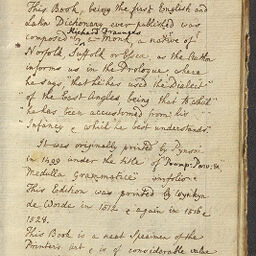 This Book, being the first English and
Latin Dictionary ever published was
Richard Fraunces
composed by a Monk, a native of
Norfolk, Suffolk or Essex, as the Author
informs us in the Prologue, where
he says, "that he has used the Dialect
"of the East Angles, being that to which
"he has been accustomed from his
"Infancy & which he best understands."
It was originally printed by Pynson
in 1499 under the title of Promp: Parv: sive
Medulla Grammatice in folio
This Edition was printed by Wynkyn
de Worde in 1512 & again in 1516 &
1528.
This Book is a neat Specimen of the
Printer's art & is of considerable value